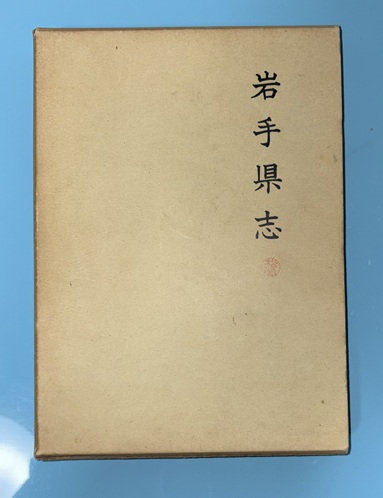 岩手県志